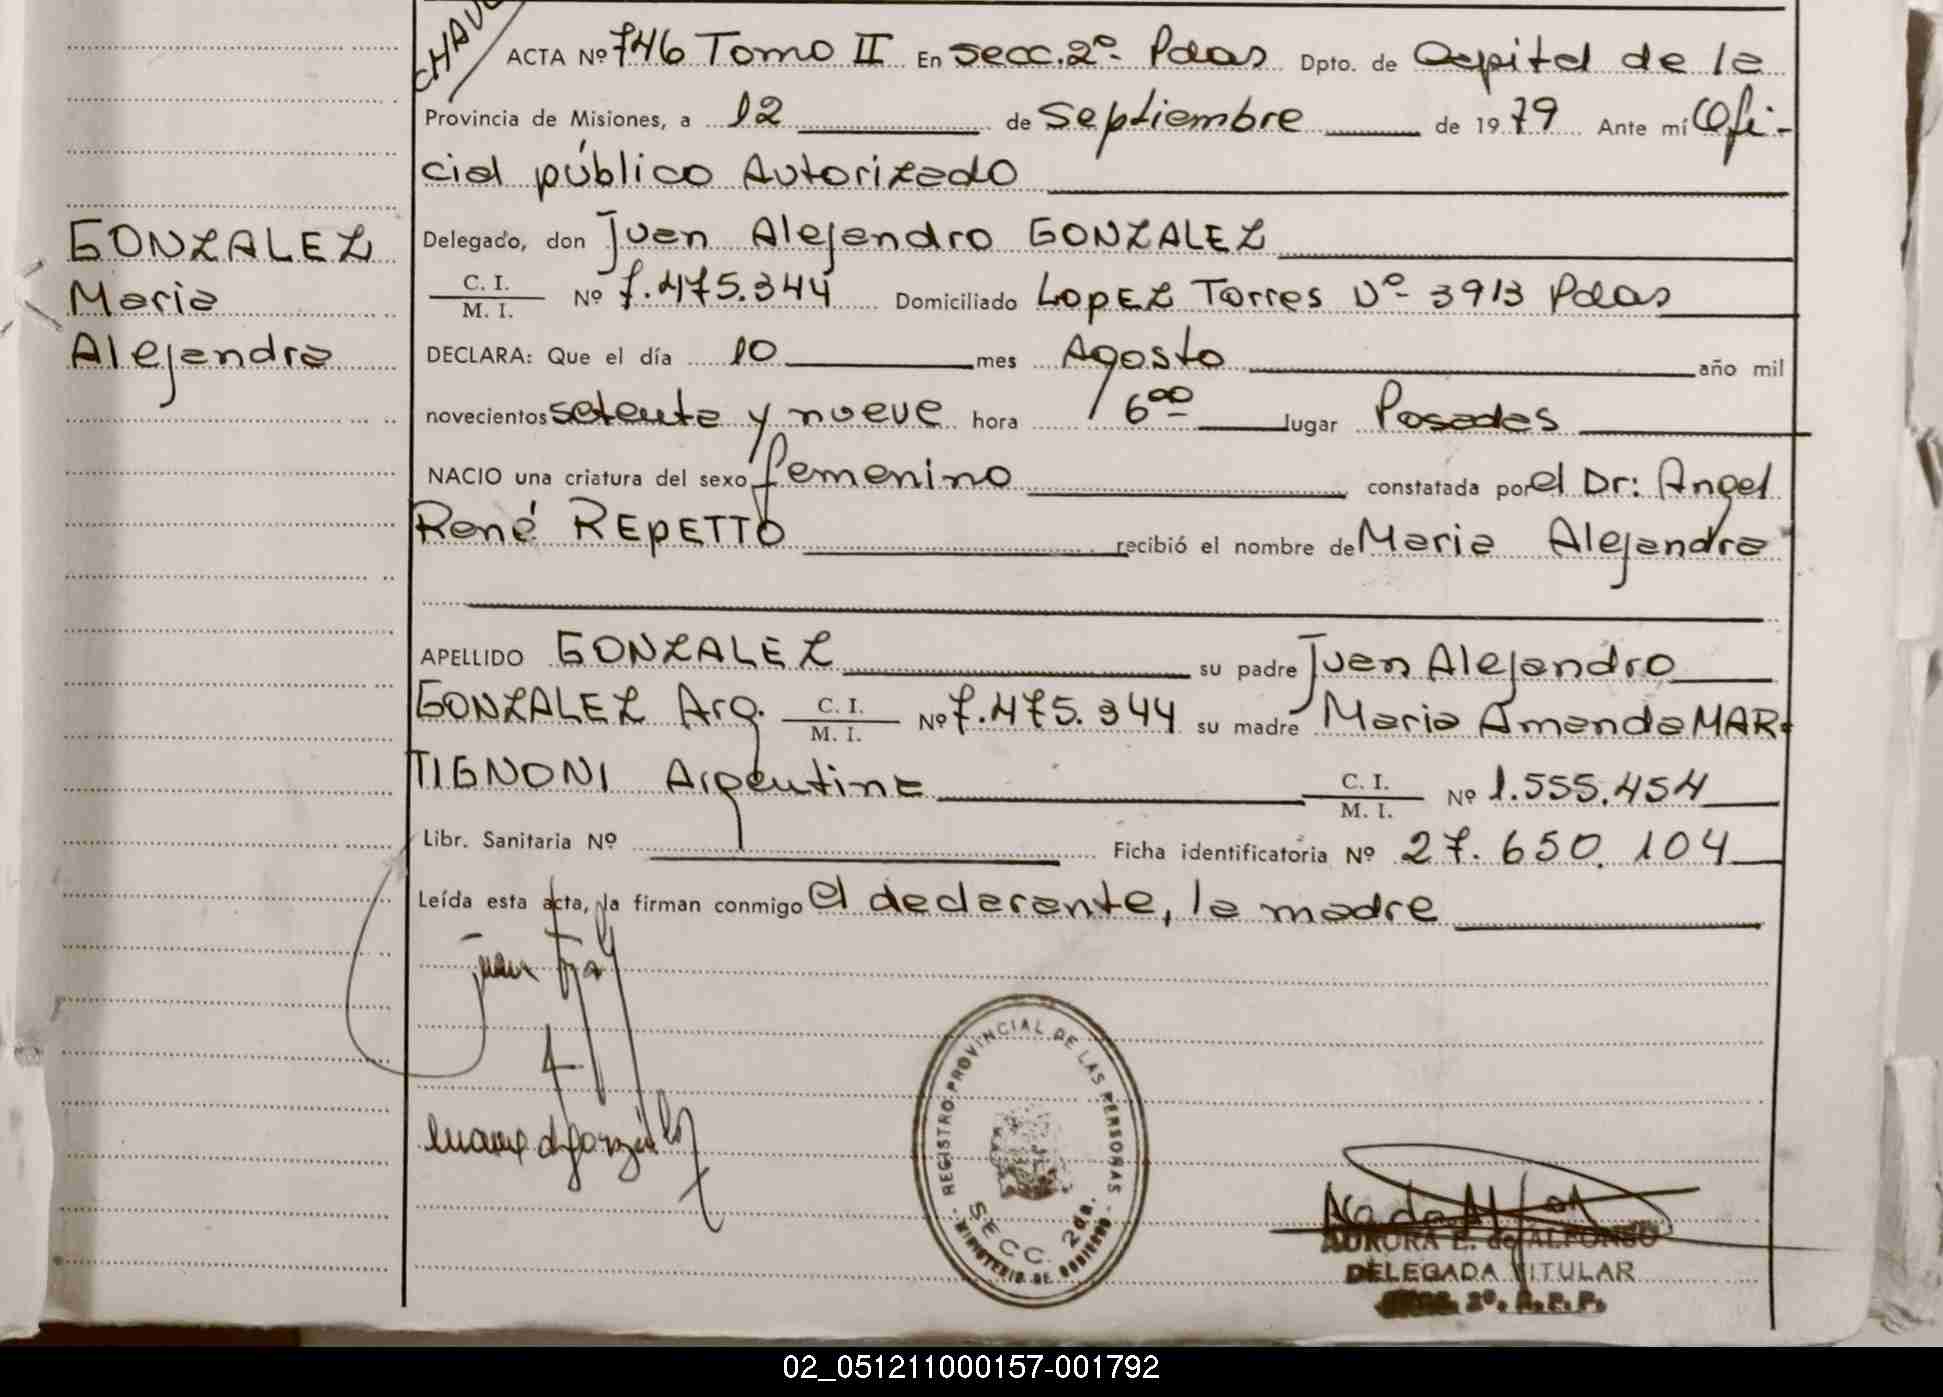 CHAV
ACTA Nº 746 Tomo II En secc. 2º- Pdas Dpto. de Capital de la
Provincia de Misiones, a 12 de Septiembre de 1979 Ante mí Ofi-
cial público Autorizado
GONZALEZ
Maria
Alejandra
Delegado, don Juan Alejandro GONZALEZ
C. I.
M. I.
Nº 7.475.344 Domiciliado LOPEZ Torres Nº- 3913 Pdas
DECLARA: Que el día 10 mes Agosto año mil
novecientos setenta y nueve hora 16 00 lugar Posadas
NACIO una criatura del sexo femenino constatada por el Dr: Angel
René REPETTO recibió el nombre de Maria Alejandra
APELLIDO GONZALEZ su padre Juan Alejandro
GONZALEZ Arg. C. I. M. I. Nº 7.475.344 su madre Maria Amanda MAR-
TIGNONI Argentina C. I. M. I. Nº 1.555.454
Libr. Sanitaria Nº Ficha identificatoria Nº 27.650.104
Leída esta acta, la firman conmigo el declarante, la madre
REGISTRO PROVINCIAL DE LAS PERSONAS
SECC. 2da.
MINISTERIO DE GOBIERNO
AURORA E. de ALFONSO
DELEGADA TITULAR
2º. R.P.P.
02_051211000157-001792